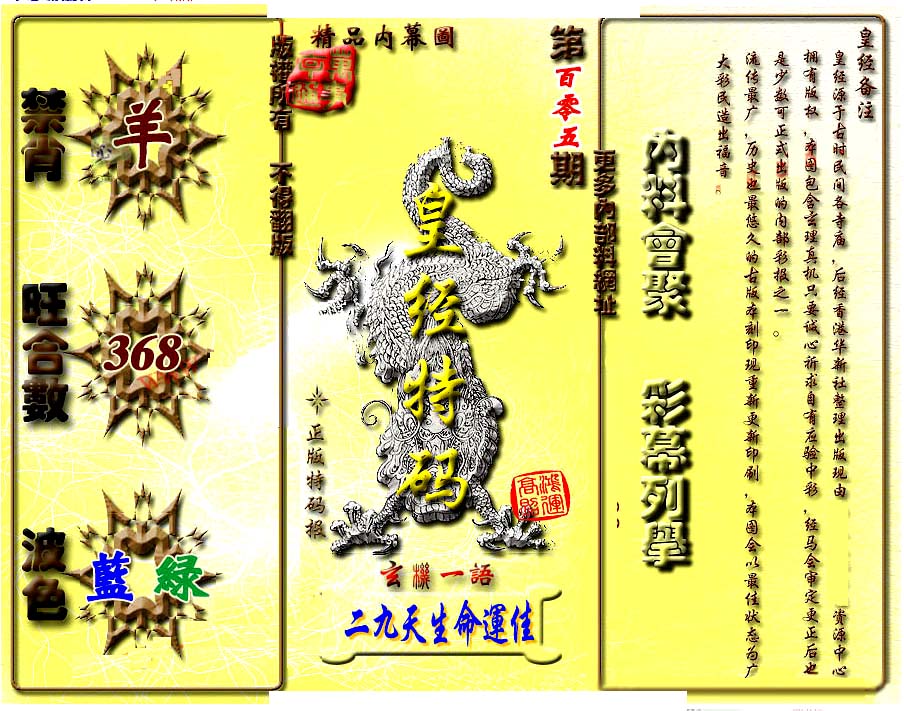 皇经备注
皇经源于古时民间各寺庙，后经香港华新社整理出版现由
资源中心
拥有版权，本图包含玄理真机只要诚心祈求自有应验中彩，经马会审定更正后也
是少数可正式出版的内部彩报之一。
流传最广，历史也最悠久的古版本刻印现重新更新印刷，本图会以最佳状态为广
大彩民造出福音
內料會聚
彩幕列舉
更多內部料網址
第百零五期
精品内幕圖
皇经特码
正版特码报
鸿運高照
玄機一語
二九天生命運佳
版權所有 不得翻版
禁肖
羊
旺合數
368
波色
藍 綠